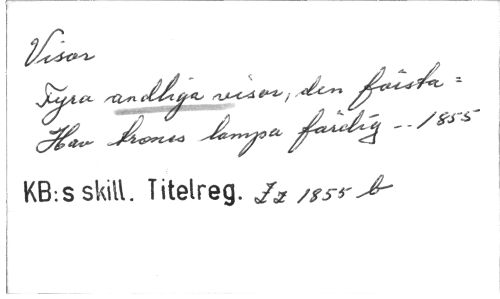 Visor
Fyra andliga visor, den första =
Hav trones lampa färdig -- 1855
KB:s skill. Titelreg. Zz 1855 b